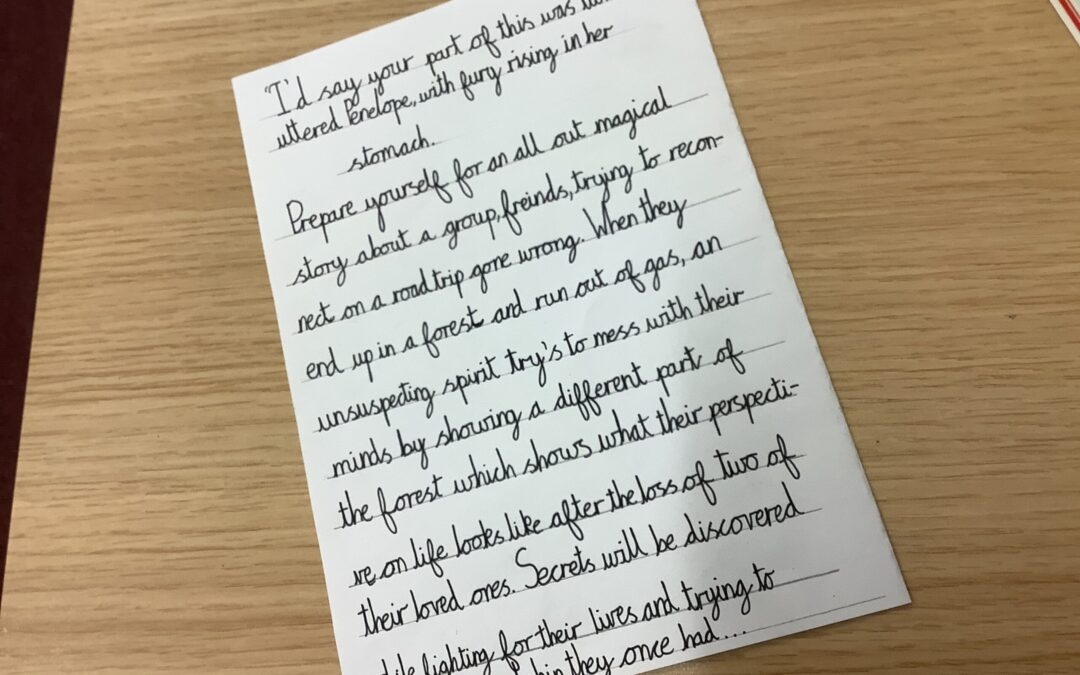 "I'd say your part of this was
uttered Penelope, with fury rising in her
stomach.
Prepare yourself for an all out magical
story about a group, freinds, trying to recon-
nect on a road trip gone wrong. When they
end up in a forest and run out of gas, an
unsuspecting spirit try's to mess with their
minds by showing a different part of
the forest which shows what their perspecti-
ve on life looks like after the loss of two of
their loved ones. Secrets will be discovered
fighting for their lives and trying to
they once had...